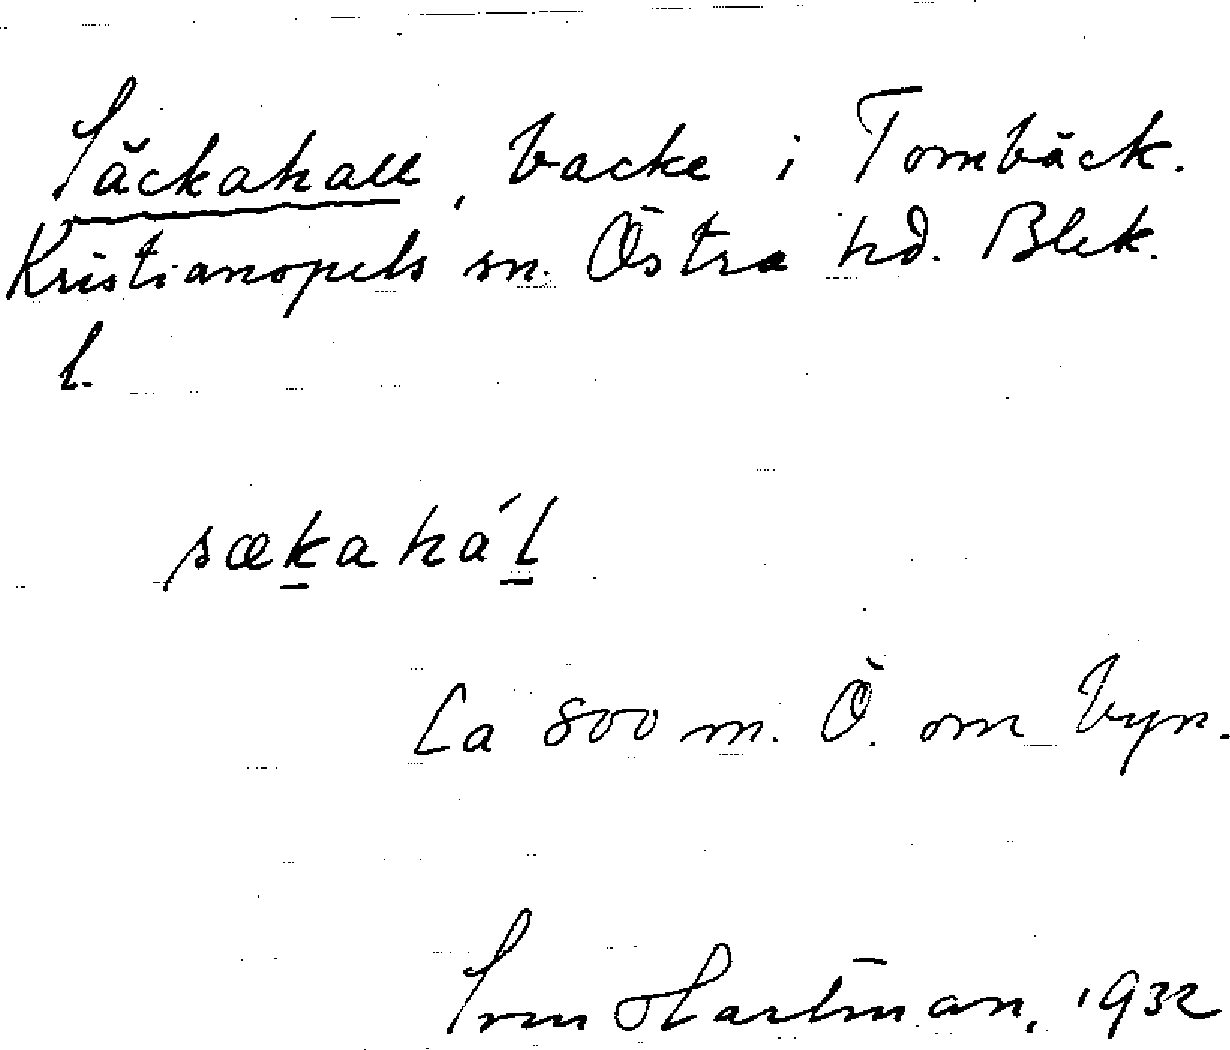 Säckahall, backe i Tornbäck.
Kristianopels sn. Östra hd. Blek.
l.
sækahál
Ca 800 m. Ö. om byn.
Sven Hartman, 1932